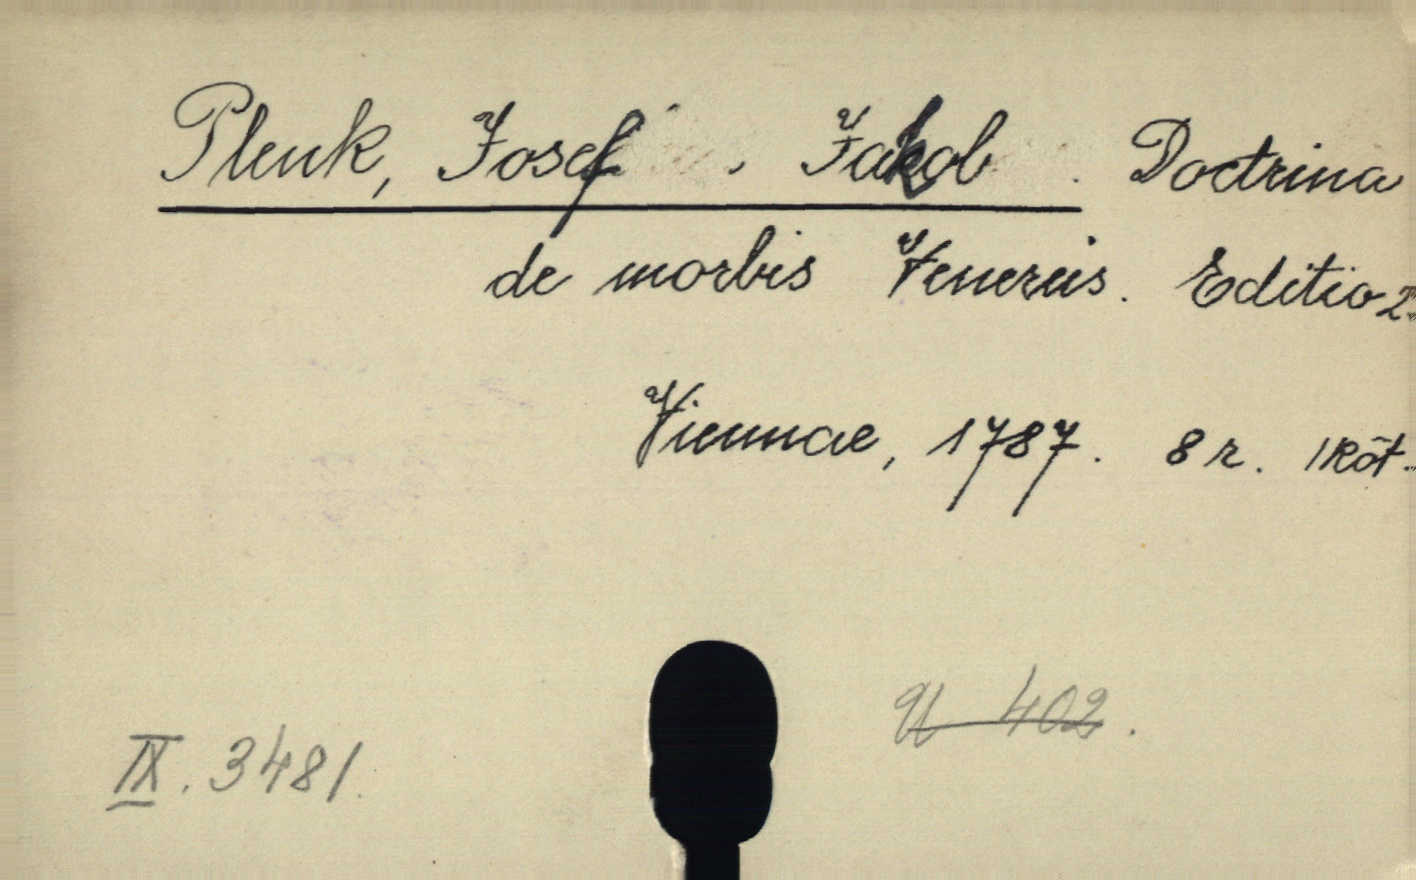 Plenk, Josef. Jakob. Doctrina
de morbis Venereis. Editio 2.
Viennae, 1787. 8 r. 1 köt.
U 402.
IX. 3481.